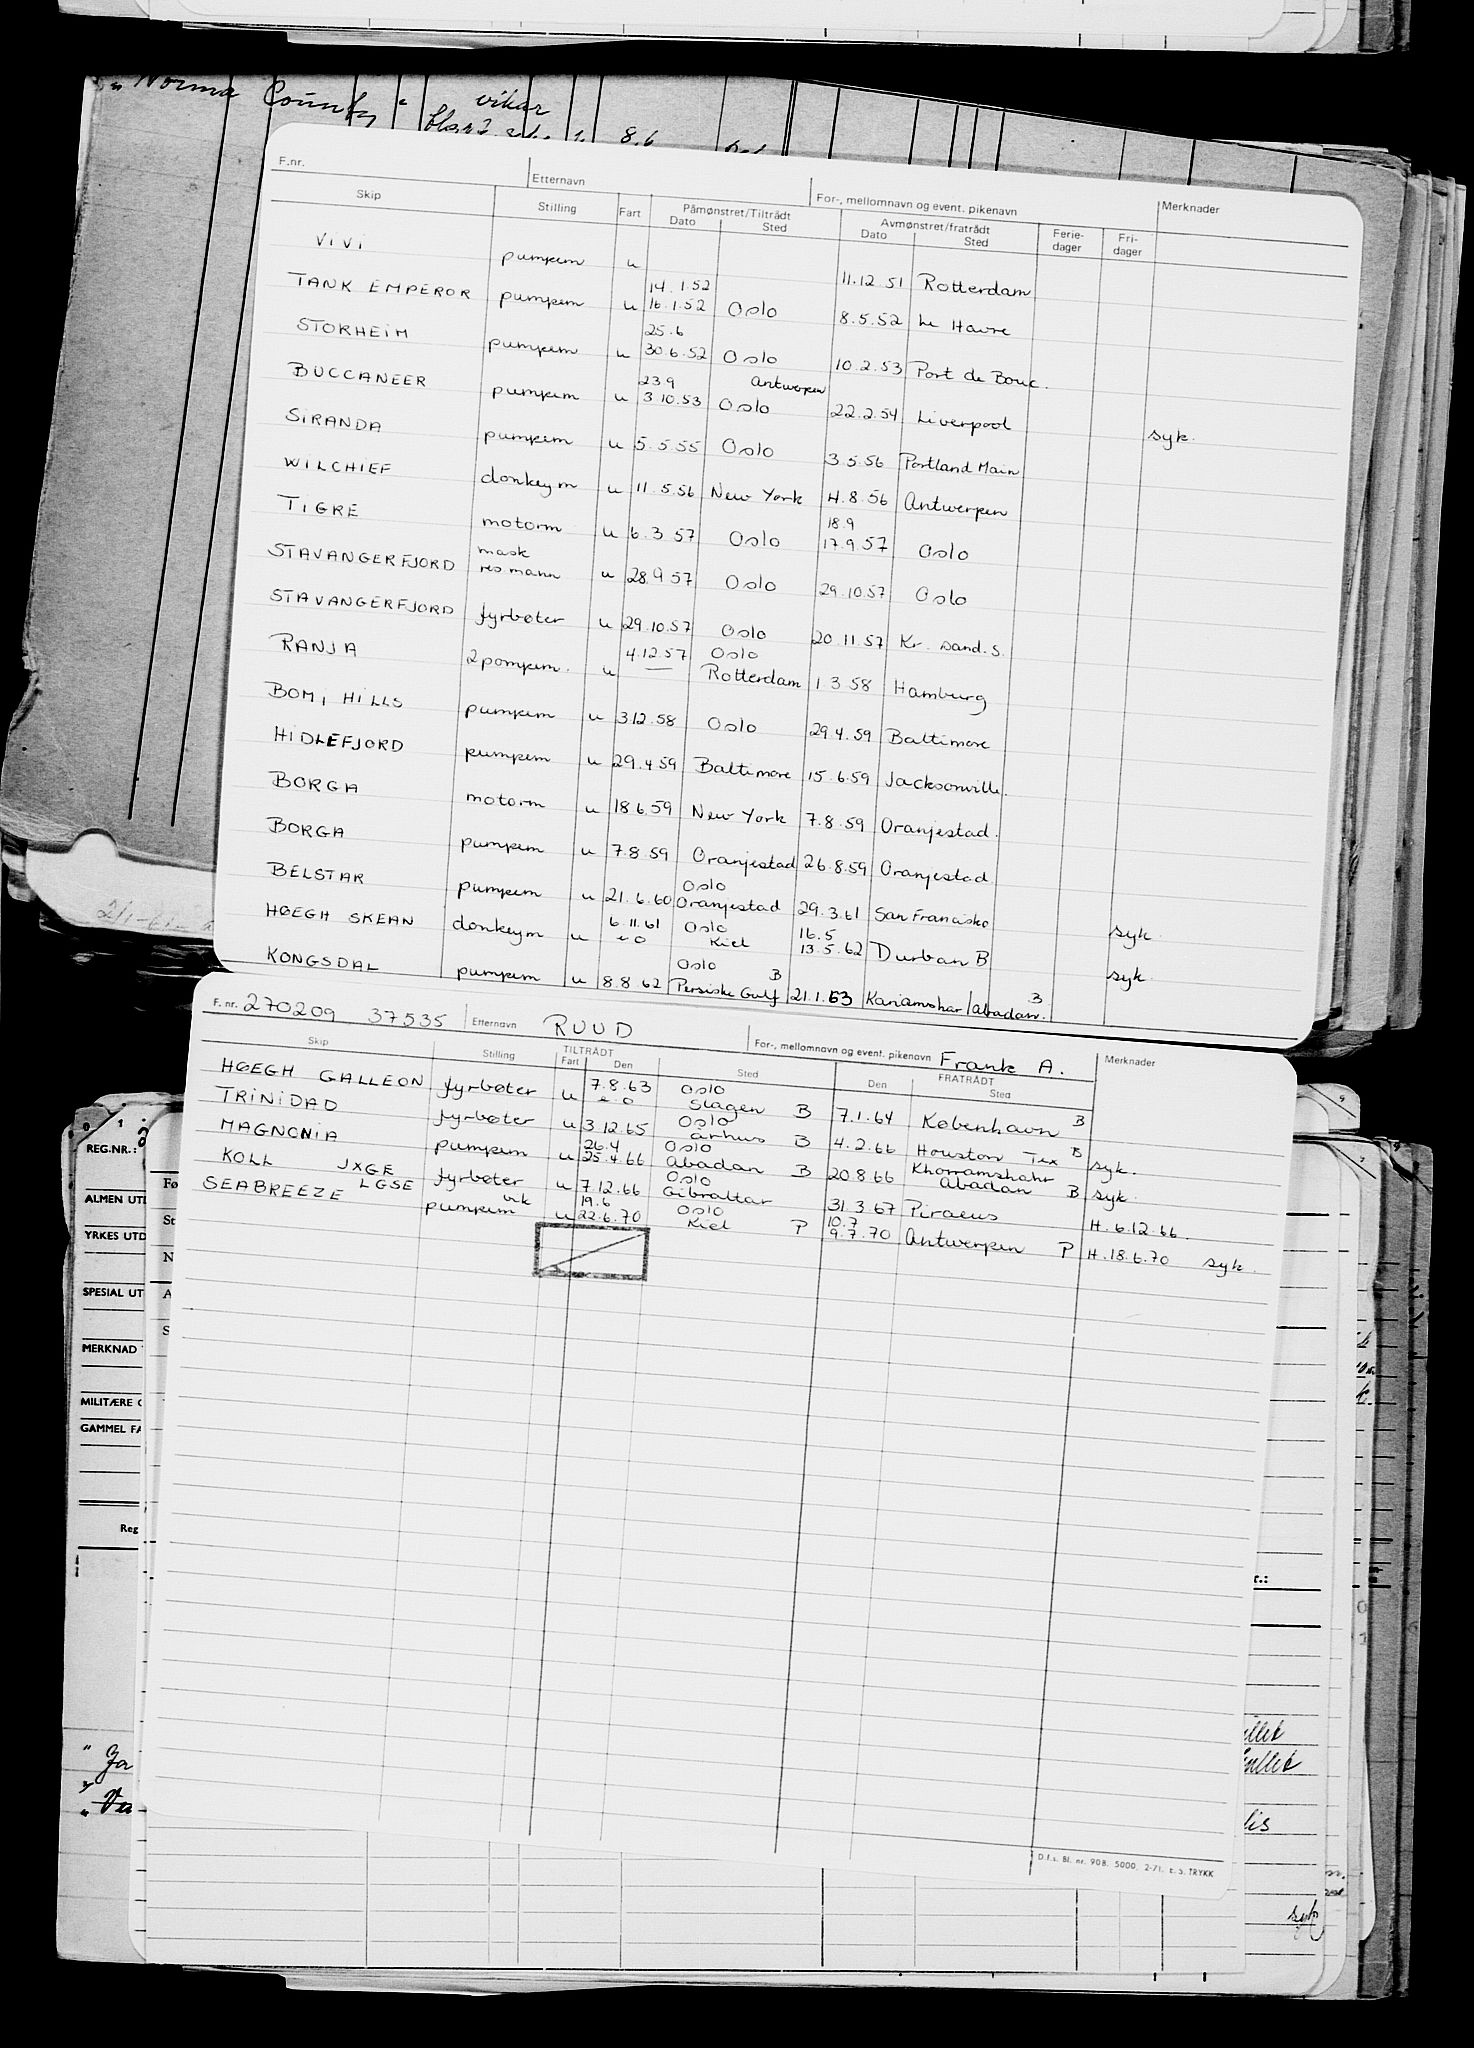 " Norma County "
vikar
8.6
F.nr. Etternavn For-, mellomnavn og event. pikenavn Merknader
Skip Stilling Fart Påmønstret/Tiltrådt Dato Sted Avmønstret/fratrådt Dato Sted Ferie-dager Fri-dager
ViVi pumpem u 11.12.51 Rotterdam
TANK EMPEROR pumpem u 14.1.52 16.1.52 Oslo 8.5.52 Le Havre
STORHEIM pumpem u 25.6 30.6.52 Oslo 10.2.53 Port de Bouc.
BUCCANEER pumpem u 23.9 Antwerpen 3.10.53 Oslo 22.2.54 Liverpool syk.
SIRANDA pumpem u 5.5.55 Oslo 3.5.56 Portland Main
WILCHIEF donkeym u 11.5.56 New York 4.8.56 Antwerpen
TIGRE motorm u 6.3.57 Oslo 18.9 17.9.57 Oslo
STAVANGERFJORD mask resmann u 28.9.57 Oslo 29.10.57 Oslo
STAVANGERFJORD fyrbøter u 29.10.57 Oslo 20.11.57 Kr. sand.S.
RANJA 2pompem. u 4.12.57 Oslo — Rotterdam 1.3.58 Hamburg
BOMI HILLS pumpem u 3.12.58 Oslo 29.4.59 Baltimore
HIDLEFJORD pumpem u 29.4.59 Baltimore 15.6.59 Jacksonville.
BORGA motorm u 18.6.59 New York 7.8.59 Oranjestad.
BORGA pumpem u 7.8.59 Oranjestad 26.8.59 Oranjestad
BELSTAR pumpem u 21.6.60 Oslo Oranjestad 29.3.61 San Fransisko syk
HØEGH SKEAN donkeym u 6.11.61 e.o Oslo Kiel 16.5 13.5.62 Durban B syk.
KONGSDAL pumpem u 8.8.62 Oslo B Persiske Gulf 21.1.63 Koriamshar/Abadan. B
F. nr. 270209 37535 Etternavn RUUD For-, mellomnavn og event. pikenavn Frank A. Merknader
Skip Stilling TILTRÅDT Fart Den Sted FRATRÅDT Den Sted
HØEGH GALLEON fyrbøter u 7.8.63 e.o Oslo Slagen B 7.1.64 København B
TRINIDAD fyrbøter u 3.12.65 Oslo Århus B 4.2.66 Houston Tex B syk.
MAGNONIA pumpem u 26.4 25.4.66 Oslo Abadan B 20.8.66 Khorramshahr Abadan B syk.
KOLL JXGE fyrbøter u 7.12.66 Oslo Gibraltar 31.3.67 Piraeus H. 6.12.66.
SEABREEZE LGSE vik pumpem u 19.6 22.6.70 Oslo Kiel P 10.7 9.7.70 Antwerpen P H.18.6.70 syk.
REG.NR.:
ALMEN UTD
YRKES UTD
SPESIAL UT
MERKNAD
MILITÆRE
GAMMEL FA
Reg
syk
D.f.s. Bl. nr. 908. 5000. 2-71. E.S. TRYKK